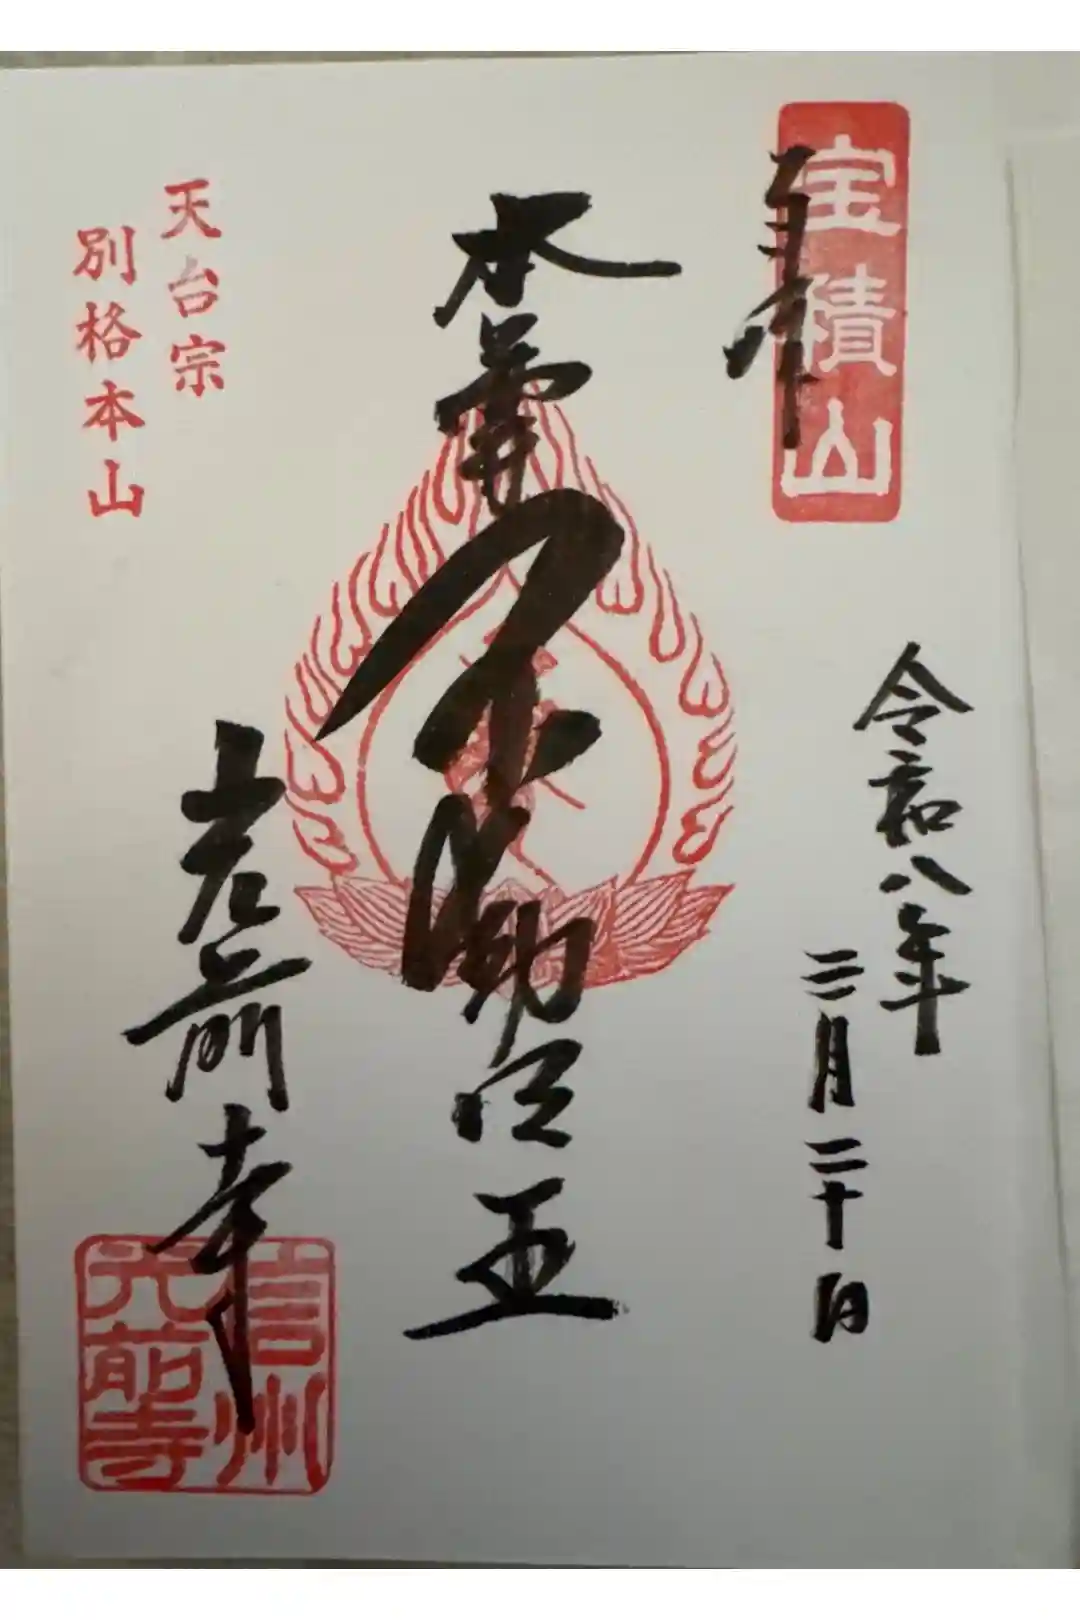 宝積山
奉拝
令和八年
三月二十日
本尊
不動明王
光前寺
天台宗
別格本山
信州
光前寺